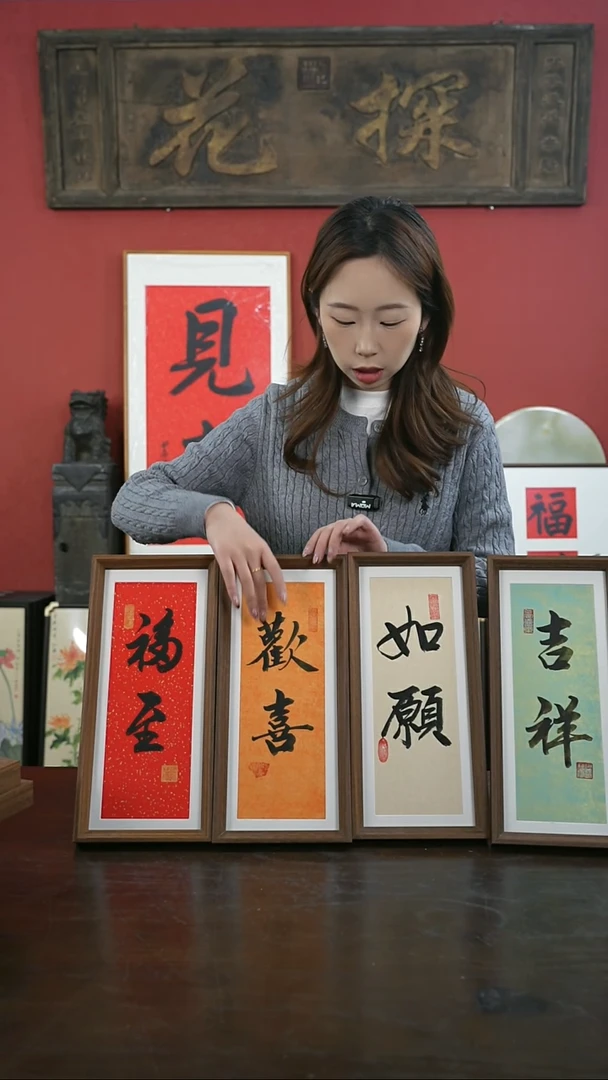 探花
見
福
福至
歡喜
如願
吉祥